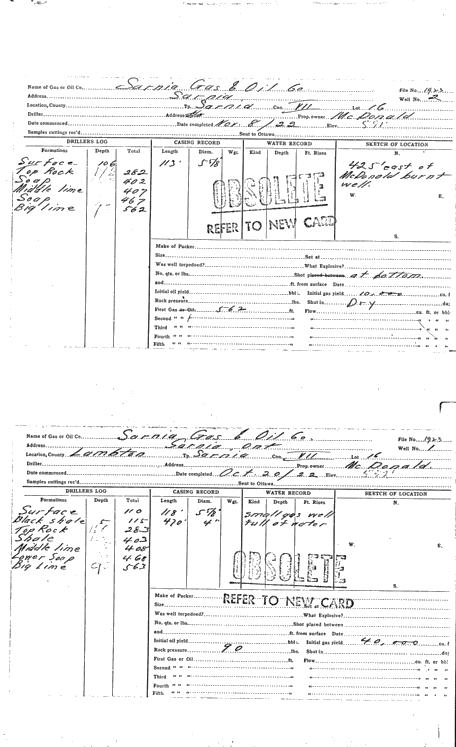 Name of Gas or Oil Co. Sarnia Gas & Oil Co File No. 1923
Address Sarnia Well No. 2
Location, County Tp. Sarnia Con. VII Lot 16
Driller Address Prop. owner McDonald
Date commenced Date completed Nov. 8/22 Elev.
Samples cuttings rec'd Sent to Ottawa
DRILLERS LOG CASING RECORD WATER RECORD SKETCH OF LOCATION
Formations Depth Total Length Diam. Wgt. Kind Depth Ft. Rises N.
Surface 106 113' 5⅝ 425' east of
Top Rock 282 McDonald burnt
Soap 402 well.
Middle lime 407 W. E.
Soap 467
Big Lime 562
OBSOLETE
REFER TO NEW CARD
S.
Make of Packer
Size Set at
Was well torpedoed? What Explosive?
No. qts. or lbs. Shot placed between at bottom.
and ft. from surface Date
Initial oil yield bbl. Initial gas yield 10,000 cu. f
Rock pressure lbs. Shut in Dry da
First Gas or Oil 562 ft. Flow cu. ft. or bbl
Second " " " " " "
Third " " " " " "
Fourth " " " " " "
Fifth " " " " " "
Name of Gas or Oil Co. Sarnia Gas & Oil Co. File No. 1923
Address Sarnia Ont Well No. 1
Location, County Lambton Tp. Sarnia Con. VII Lot 16
Driller Address Prop. owner Mc Donald.
Date commenced Date completed Oct. 20/22 Elev.
Samples cuttings rec'd Sent to Ottawa
DRILLERS LOG CASING RECORD WATER RECORD SKETCH OF LOCATION
Formations Depth Total Length Diam. Wgt. Kind Depth Ft. Rises N.
Surface 110 118' 5⅝ small gas well
Black shale 5 115 470' 4" full of water
Top Rock 283
Shale 403
Middle Lime 408 W. E.
Lower Soap 468
Big Lime 563
OBSOLETE
S.
REFER TO NEW CARD
Make of Packer
Size Set at
Was well torpedoed? What Explosive?
No. qts. or lbs. Shot placed between
and ft. from surface Date
Initial oil yield bbl. Initial gas yield 40,000 cu. f
Rock pressure 90 lbs. Shut in da
First Gas or Oil ft. Flow cu. ft. or bbl
Second " " " " " "
Third " " " " " "
Fourth " " " " " "
Fifth " " " " " "